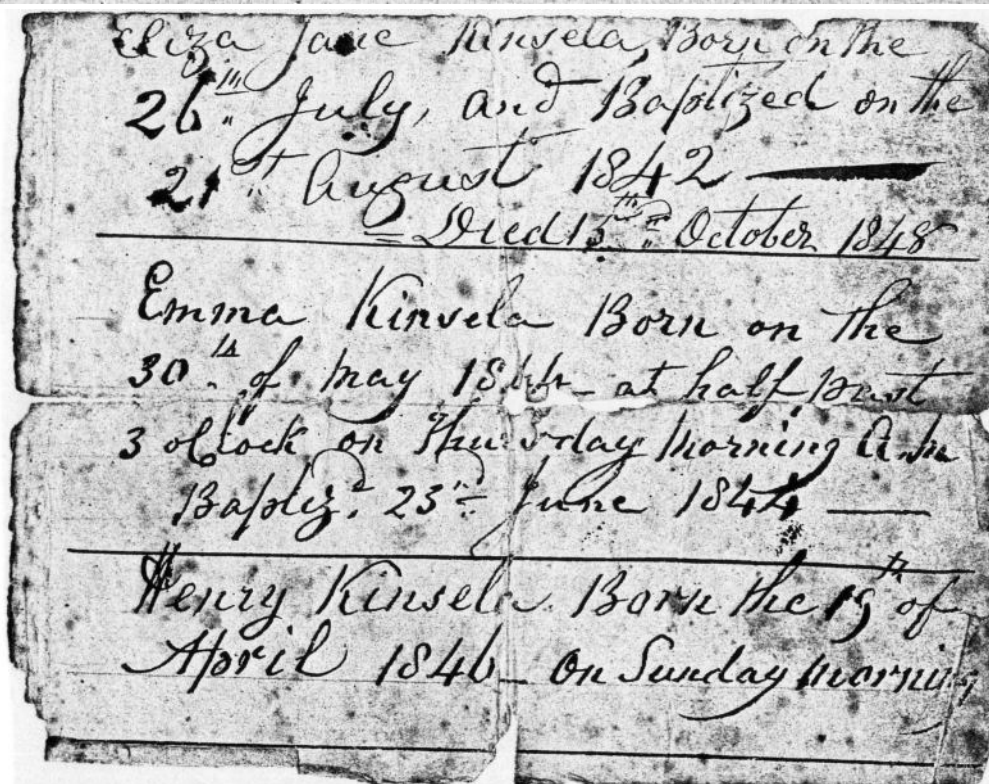 Eliza Jane Kinsela, Born on the
26th July, and Baptized on the
21st August 1842
Died 15th October 1848
Emma Kinsela Born on the
30th of May 1844 at half past
3 oClock on Thursday Morning A.M
Baptizd. 23rd June 1844
Henry Kinsela Born the 19th of
April 1846 on Sunday Morning